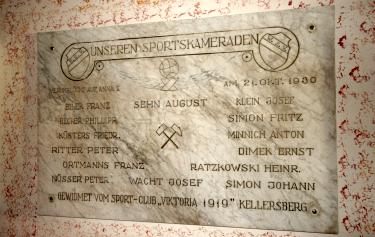 UNSEREN SPORTSKAMERADEN
VERUNGLÜCKT AUF ANNA II AM 21. OKT. 1930
BIHER FRANZ SEHN AUGUST KLEIN JOSEF
BECHER PHILIPP SIMON FRITZ
KÜSTERS FRIEDR. MINNICH ANTON
RITTER PETER DIMEK ERNST
ORTMANNS FRANZ RATZKOWSKI HEINR.
NÜSSER PETER WACHT JOSEF SIMON JOHANN
GEWIDMET VOM SPORT-CLUB „VIKTORIA 1919" KELLERSBERG